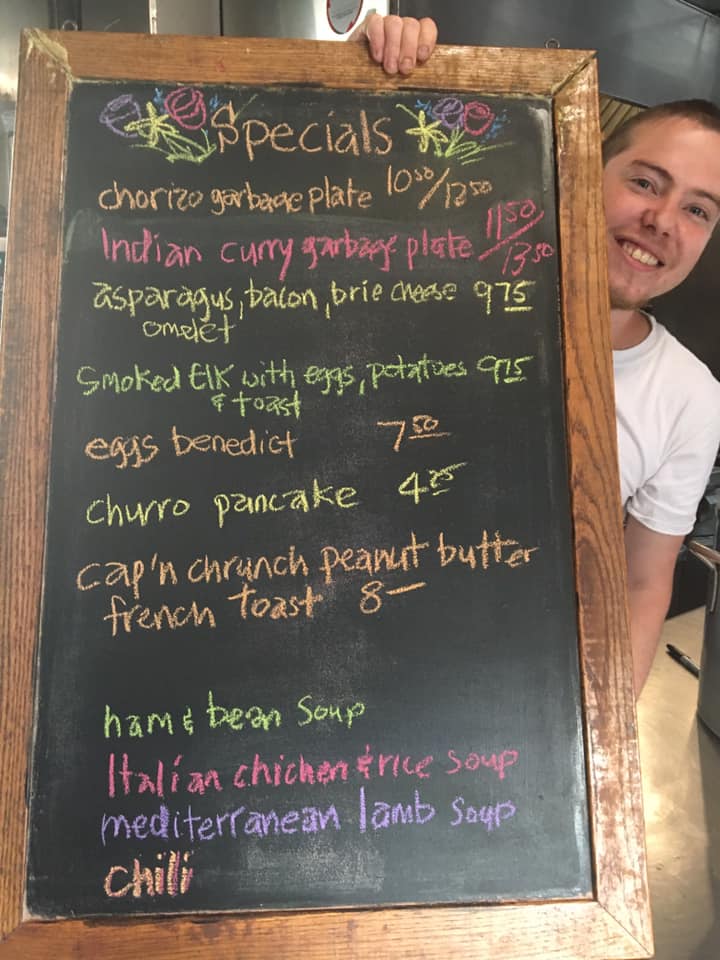 Specials
chorizo garbage plate 10 50/12 50
Indian curry garbage plate 11 50/13 50
asparagus, bacon, brie cheese 9 75
omelet
Smoked Elk with eggs, potatoes 9 75
& toast
eggs benedict 7 50
churro pancake 4 25
cap'n chrunch peanut butter
french toast 8—
ham & bean soup
Italian chicken & rice soup
mediterranean lamb soup
chili